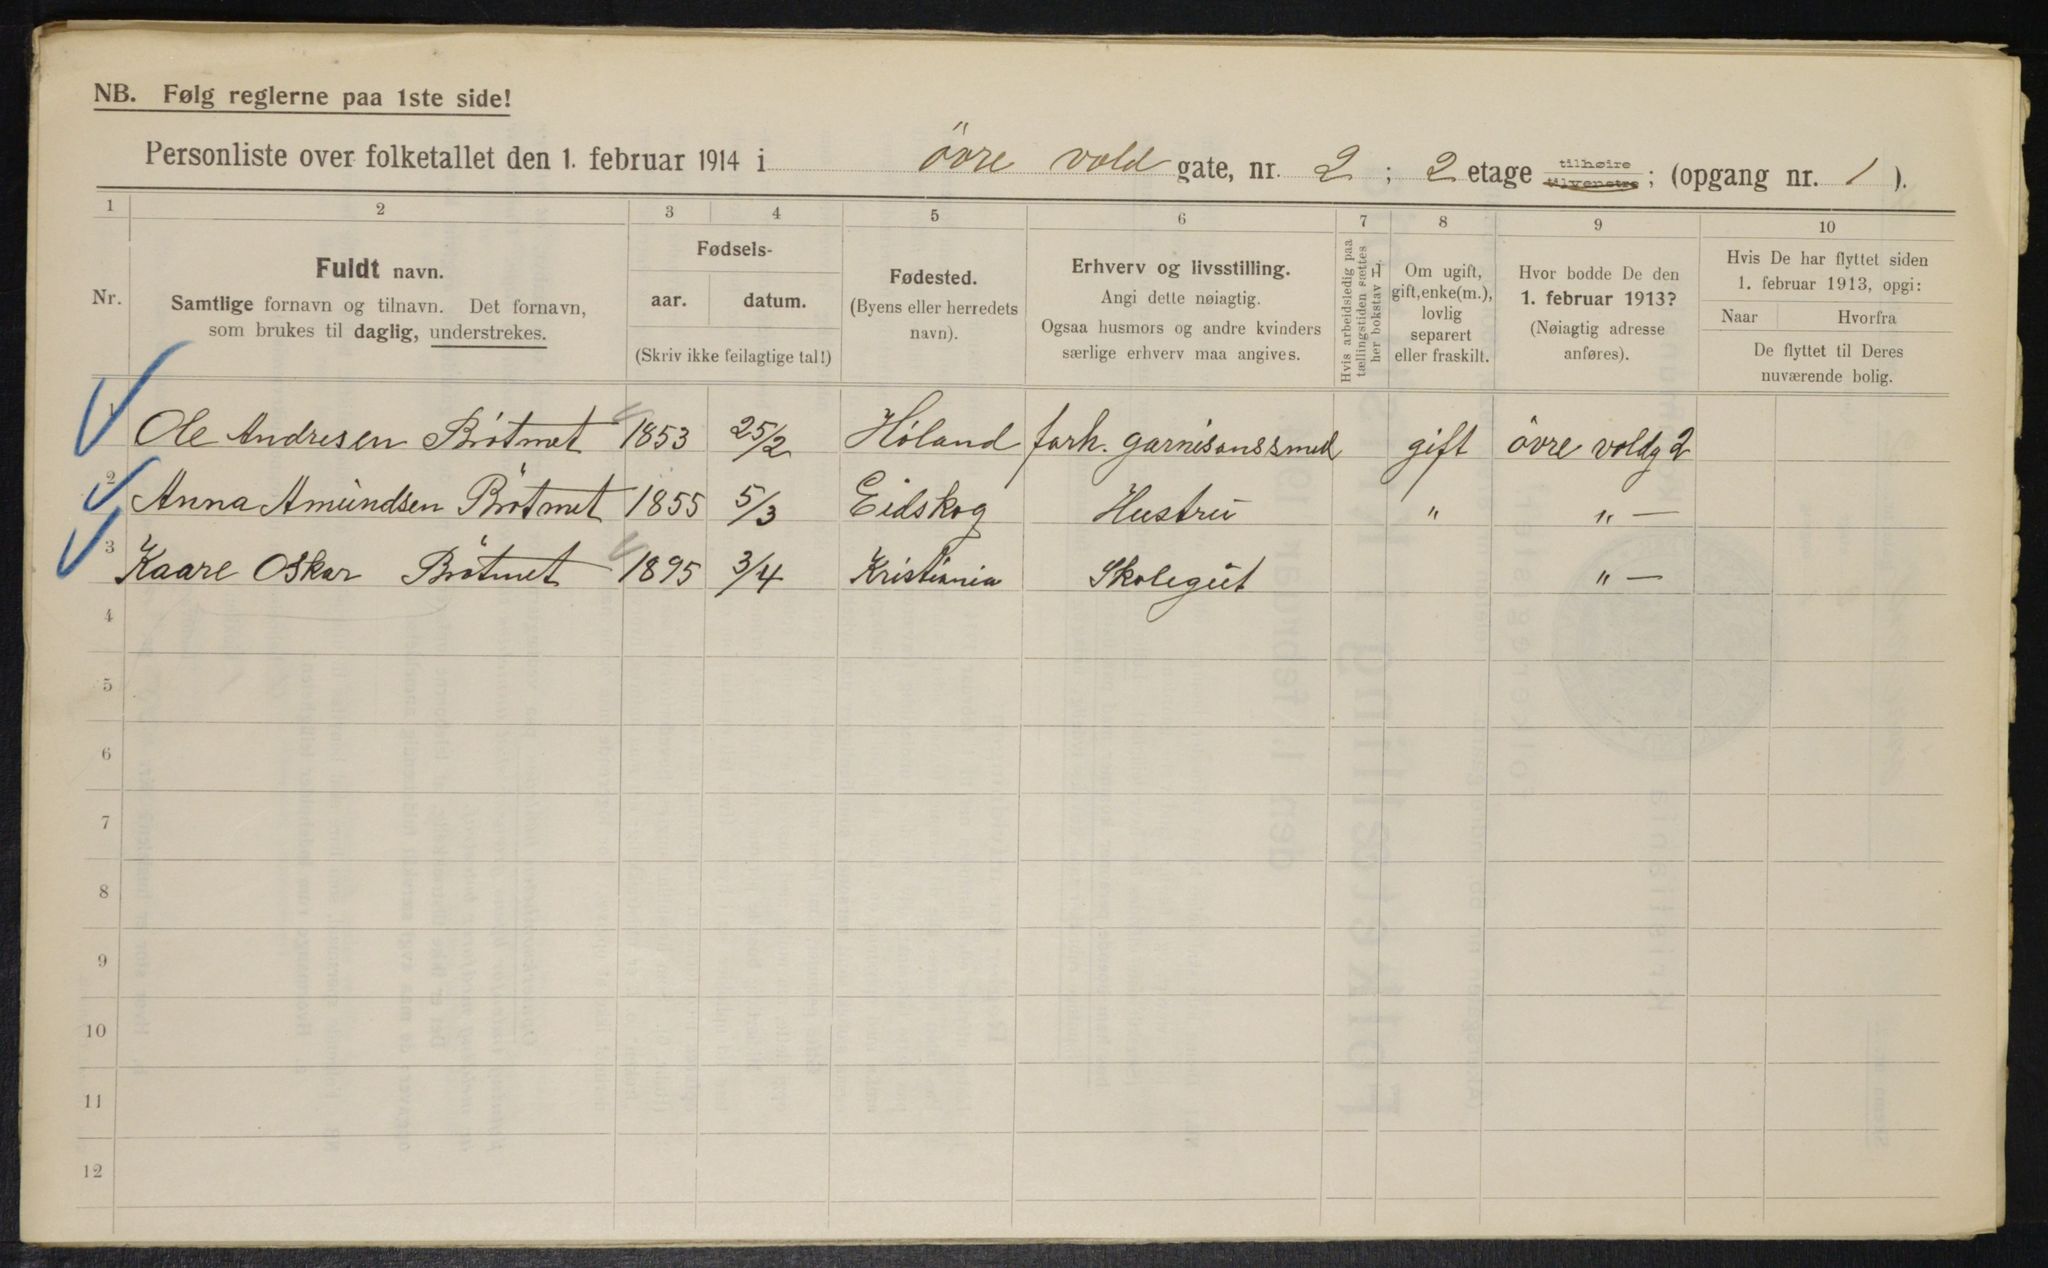 NB. Følg reglerne paa 1ste side!
Personliste over folketallet den 1. februar 1914 i övre vold gate, nr. 2 ; 2 etage tilhøire tilvenstre ; (opgang nr. 1 ).
1 2 3 4 5 6 7 8 9 10
Nr.
Fuldt navn.
Samtlige fornavn og tilnavn. Det fornavn,
som brukes til daglig, understrekes.
Fødsels-
aar. datum.
(Skriv ikke feilagtige tal!)
Fødested.
(Byens eller herredets
navn).
Erhverv og livsstilling.
Angi dette nøiagtig.
Ogsaa husmors og andre kvinders
særlige erhverv maa angives.
Hvis arbeidsledig paa
tællingstiden sættes
her bokstav L.
Om ugift,
gift, enke(m.),
lovlig
separert
eller fraskilt.
Hvor bodde De den
1. februar 1913?
(Nøiagtig adresse
anføres).
Hvis De har flyttet siden
1. februar 1913, opgi:
Naar Hvorfra
De flyttet til Deres
nuværende bolig.
1 Ole Andresen Brötmet 1853 25/2 Höland forh. garnisonssmed gift övre voldg 2
2 Anna Amundsen Brötmet 1855 5/3 Eidskog Hustru " " —
3 Kaare Oskar Brötmet 1895 3/4 Kristiania Skolegut " —
4
5
6
7
8
9
10
11
12